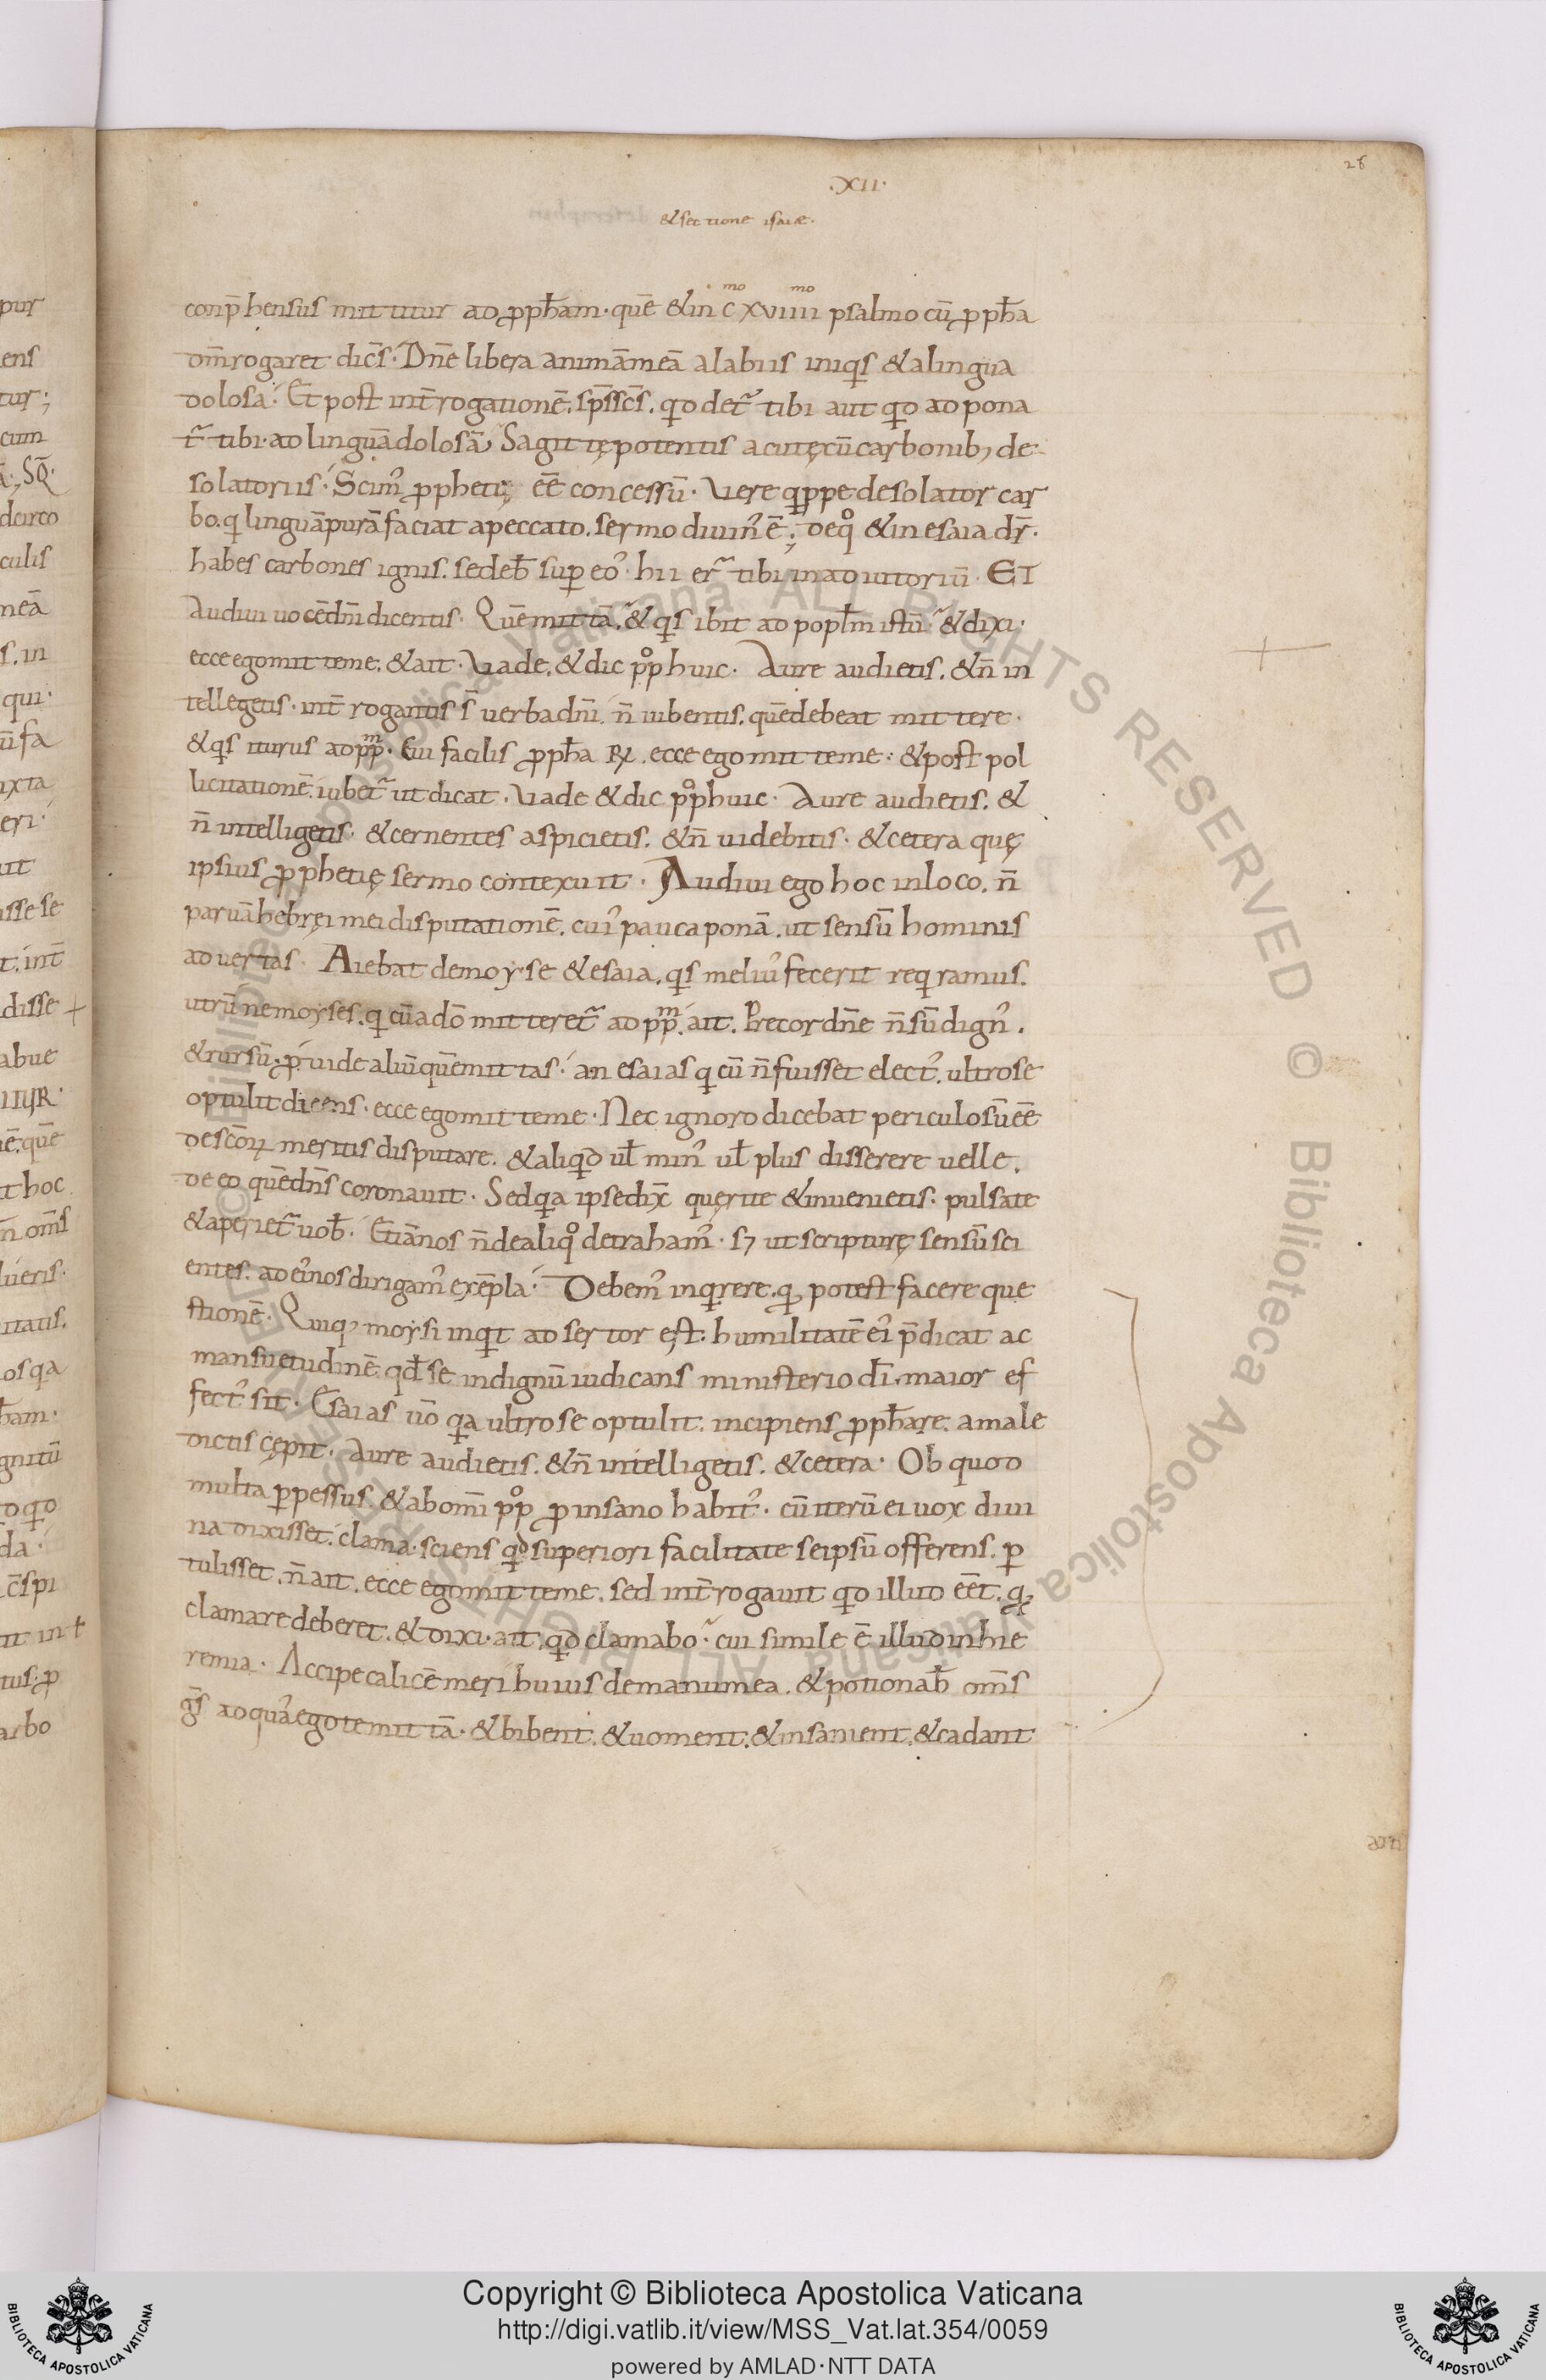 28
.XII.
& sectione isaiae.
conp̄hensus mittitur ad ꝓph̄am. quē & in cmo xviiiimo psalmo cū ꝓph̄a
dm̄ rogaret dic̄s. Dn̄e libera animā meā a labiis iniqis & a lingua
dolosa. Et post int̄rogationē. sp̄s sc̄s. qd det᷑ tibi aut qd adpona
t᷑ tibi. ad linguā dolosā. Sagittę potentis acutę cū carbonib; de
solatoriis. Scim᾿ ꝓphetę ēē concessū. Vere qippe desolator car
bo. q linguā purā faciat a peccato. sermo diuin᾿ ē; de qo & in esaia dr̄.
habes carbones ignis. sedeb̄ sup eo᾿. hii er᷑ tibi in adiutoriū. ET
Audiui uocē dn̄i dicentis. Quē mittā. & qis ibit ad popl̄m istū. & dixi.
ecce ego mitte me. & ait. Vade. & dic ppo huic. Aure audietis. & n̄ in
tellegetis. int̄rogantis s̄ uerba dn̄i. n̄ iubentis. quē debeat mittere.
& qis iturus ad ppm. Cui facilis ꝓph̄a R̸. ecce ego mitte me. & post pol
licitationē. iubet᷑ ut dicat. Vade & dic ppo huic. Aure audietis. &
n̄ intelligetis. & cernentes aspicietis. & n̄ uidebitis. & cetera quę
ipsius ꝓphetię sermo contexuit. Audiui ego hoc in loco. n̄
paruā hebręi mei disputationē. cui᾿ pauca ponā. ut sensū hominis
aduertas. Aiebat de moyse & esaia. qis meliu᾿ fecerit reqiramus.
utrūne moyses. q cū a dō mitteret᷑ ad ppm. ait. Precor dn̄e n̄ sū dign᾿.
& rursū. ꝓuide aliū quē mittas. an esaias q cū n̄ fuisset elect᾿. ultro se
optulit dicens. ecce ego mitte me. Nec ignoro dicebat periculosū ēē
de sc̄oꝝ meritis disputare. & aliqid ul̄ min᾿ ul̄ plus disserere uelle.
de eo quē dn̄s coronauit. Sed qia ipse dix̄ quęrite & inuenietis. pulsate
& aperiet᷑ uob̄. Etiā nos n̄ de aliqo detraham᾿. s; ut scripturę sensū sci
entes. ad ei᾿ nos dirigam᾿ exēpla. Debem᾿ inqirere. qę potest facere que
stionē. Quiq᾿ moysi inqit adsertor est. humilitatē ei᾿ p̄dicat ac
mansuetudinē. qd̄ se indignū iudicans ministerio dī. maior ef
fect᾿ sit. Esaias ūo qia ultro se optulit. incipiens ꝓph̄are. a male
dictis cępit. Aure audietis. & n̄ intelligetis. & cetera. Ob quod
multa ꝑpessus. & ab omī ppo ꝓ insano habit᾿. cū iterū ei uox diui
na dixisset. clama. sciens qd superiori facilitate seipsū offerens. ꝑ
tulisset. n̄ ait. ecce ego mitte me. sed int̄rogauit qd illud ēēt. qę
clamare deberet. & dixi. ait. qd clamabo. cui simile ē illud in hie
remia. Accipe calicē meri huius de manu mea. & potionab̄ oms̄
gs̄ ad quā ego te mittā. & bibent. & uoment. & insanient. & cadant
Copyright © Biblioteca Apostolica Vaticana
http://digi.vatlib.it/view/MSS_Vat.lat.354/0059
powered by AMLAD·NTT DATA